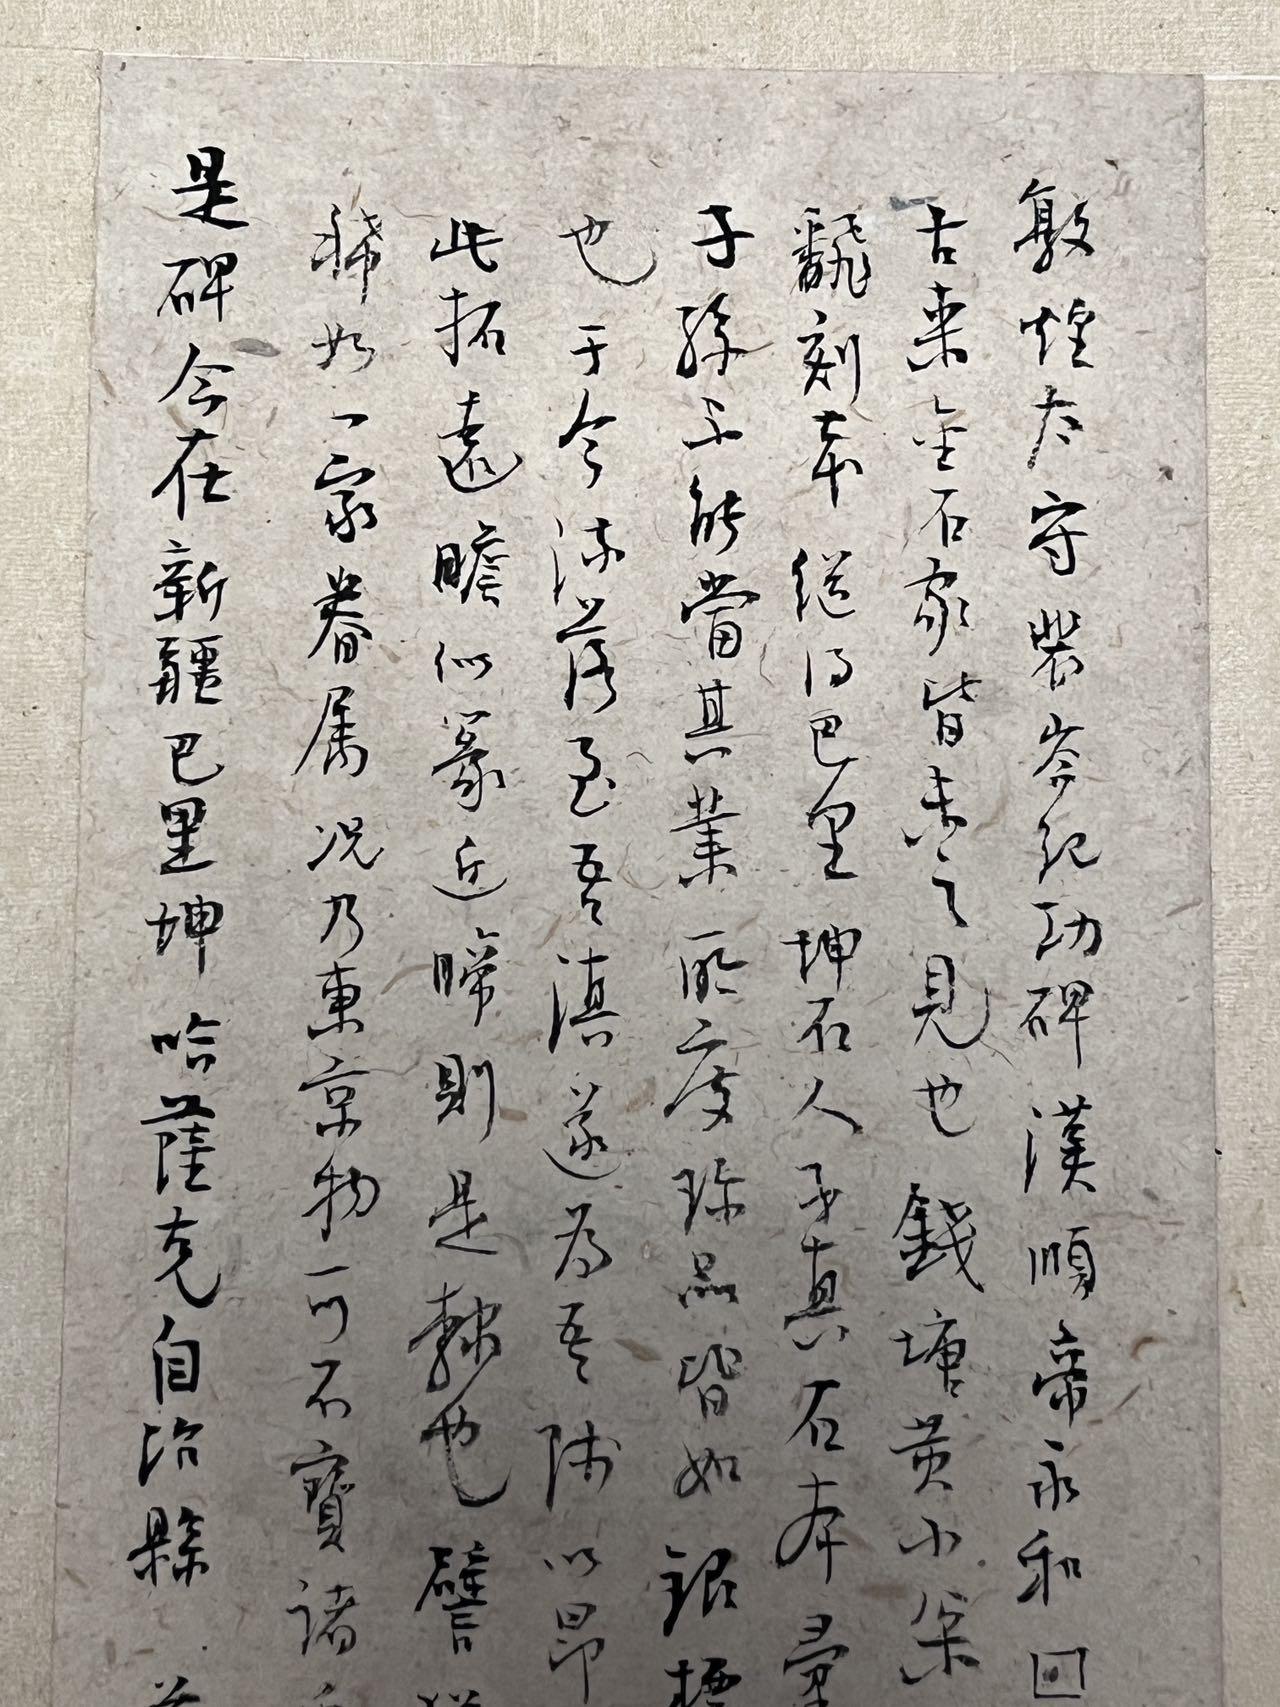 敦煌太守裴岑紀功碑漢順帝永和
古来金石家皆未之見也錢塘黄小
飜刻本繼得巴里坤石人子真石本
子孫不能當其業所度珎品皆如銀
也于今流落至吾滇遂為吾師以昂
此拓遠瞻似篆近睇則是隸也譬
稀如一家眷属况乃東京物可不寶諸
是碑今在新疆巴里坤哈薩克自治縣